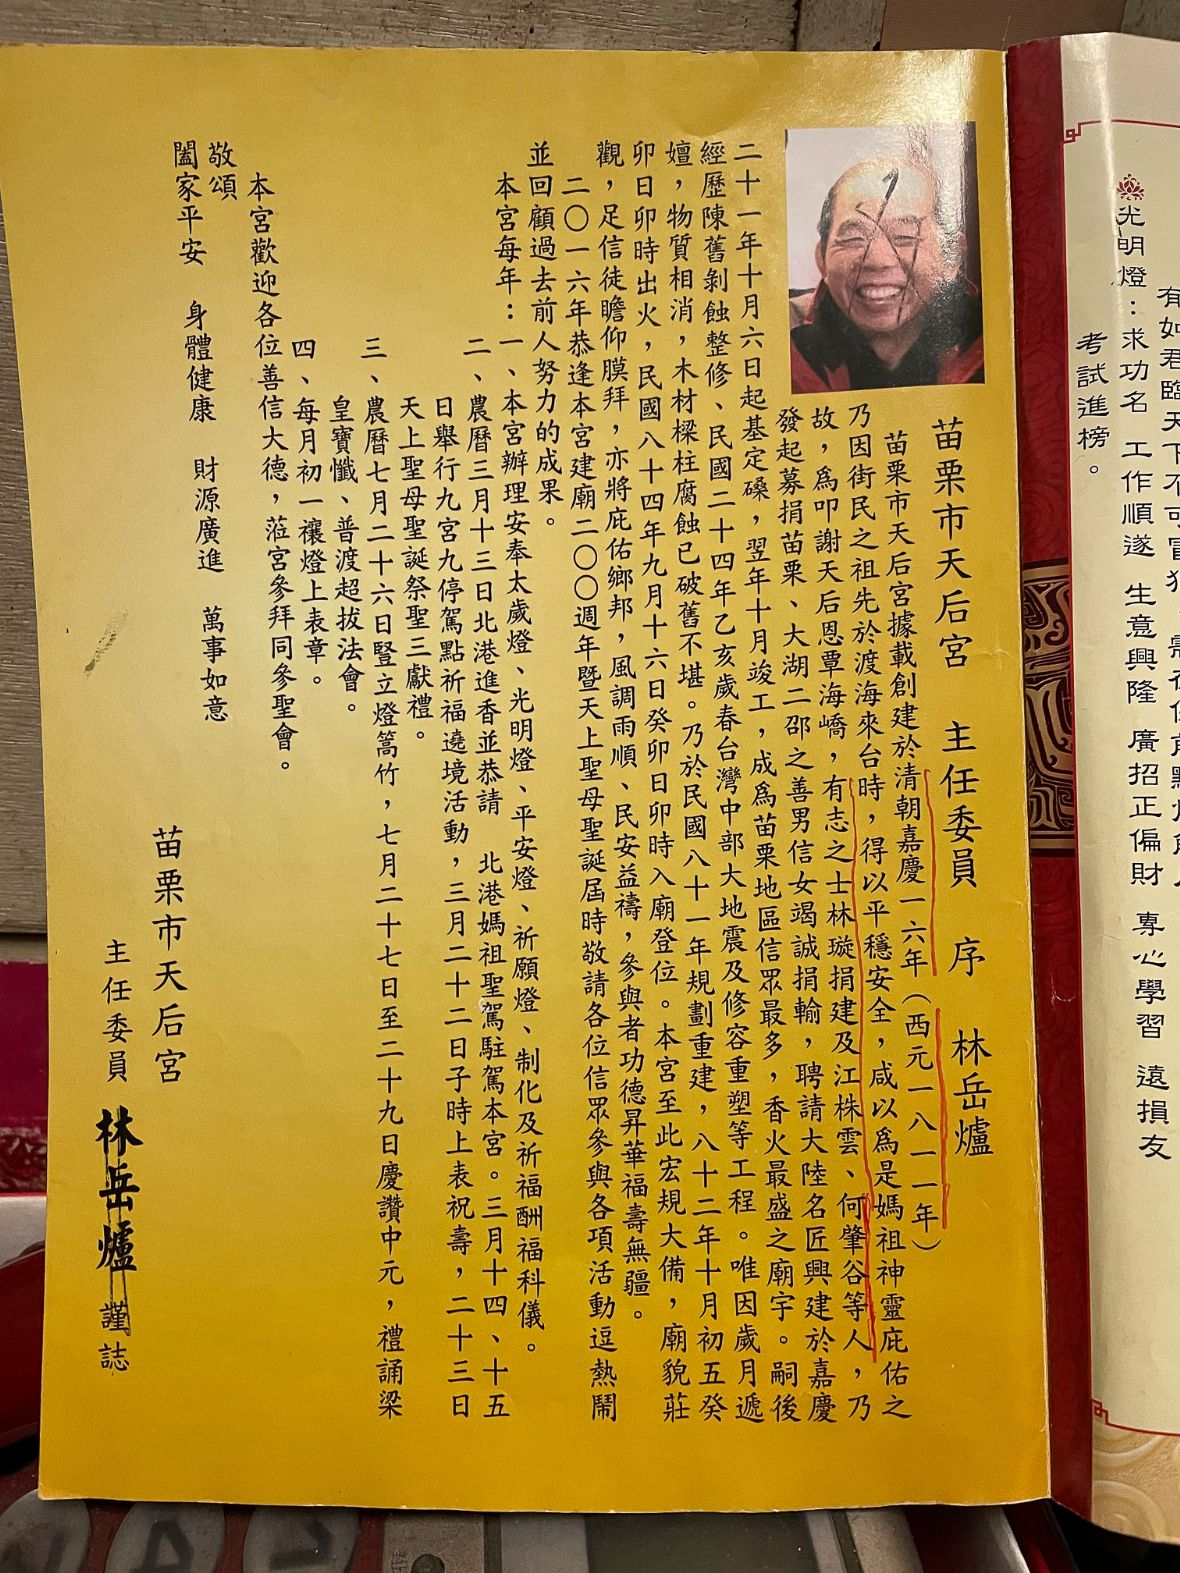 有如君臨天下不可冒犯
光明燈：求功名 工作順遂 生意興隆 廣招正偏財 專心學習 遠損友
考試進榜。
苗栗市天后宮 主任委員 序 林岳爐
苗栗市天后宮據載創建於清朝嘉慶一六年（西元一八一一年）
乃因街民之祖先於渡海來台時，得以平穩安全，咸以為是媽祖神靈庇佑之
故，為叩謝天后恩覃海嶠，有志之士林璇捐建及江株雲、何肇谷等人，乃
發起募捐苗栗、大湖二邵之善男信女竭誠捐輸，聘請大陸名匠興建於嘉慶
二十一年十月六日起基定磉，翌年十月竣工，成為苗栗地區信眾最多，香火最盛之廟宇。嗣後
經歷陳舊剝蝕整修、民國二十四年乙亥歲春台灣中部大地震及修容重塑等工程。唯因歲月遞
嬗，物質相消，木材樑柱腐蝕已破舊不堪。乃於民國八十一年規劃重建，八十二年十月初五癸
卯日卯時出火，民國八十四年九月十六日癸卯日卯時入廟登位。本宮至此宏規大備，廟貌莊
觀，足信徒瞻仰膜拜，亦將庇佑鄉邦，風調雨順、民安益禱，參與者功德昇華福壽無疆。
二〇一六年恭逢本宮建廟二〇〇週年暨天上聖母聖誕屆時敬請各位信眾參與各項活動逗熱鬧
並回顧過去前人努力的成果。
本宮每年：一、本宮辦理安奉太歲燈、光明燈、平安燈、祈願燈、制化及祈福酬福科儀。
二、農曆三月十三日北港進香並恭請 北港媽祖聖駕駐駕本宮。三月十四、十五
日舉行九宮九停駕點祈福遶境活動，三月二十二日子時上表祝壽，二十三日
天上聖母聖誕祭聖三獻禮。
三、農曆七月二十六日豎立燈篙竹，七月二十七日至二十九日慶讚中元，禮誦梁
皇寶懺、普渡超拔法會。
四、每月初一禳燈上表章。
本宮歡迎各位善信大德，蒞宮參拜同參聖會。
敬頌
闔家平安 身體健康 財源廣進 萬事如意
苗栗市天后宮
主任委員 林岳爐 謹誌